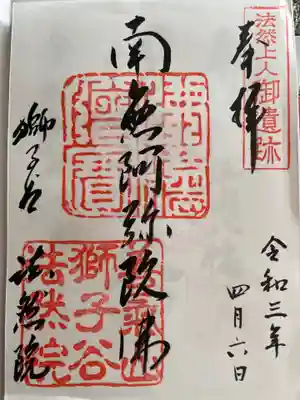 法然上人御遺跡
奉拝
令和三年
四月六日
南無阿弥陀佛
獅子谷
法然院
獅子谷
法然院